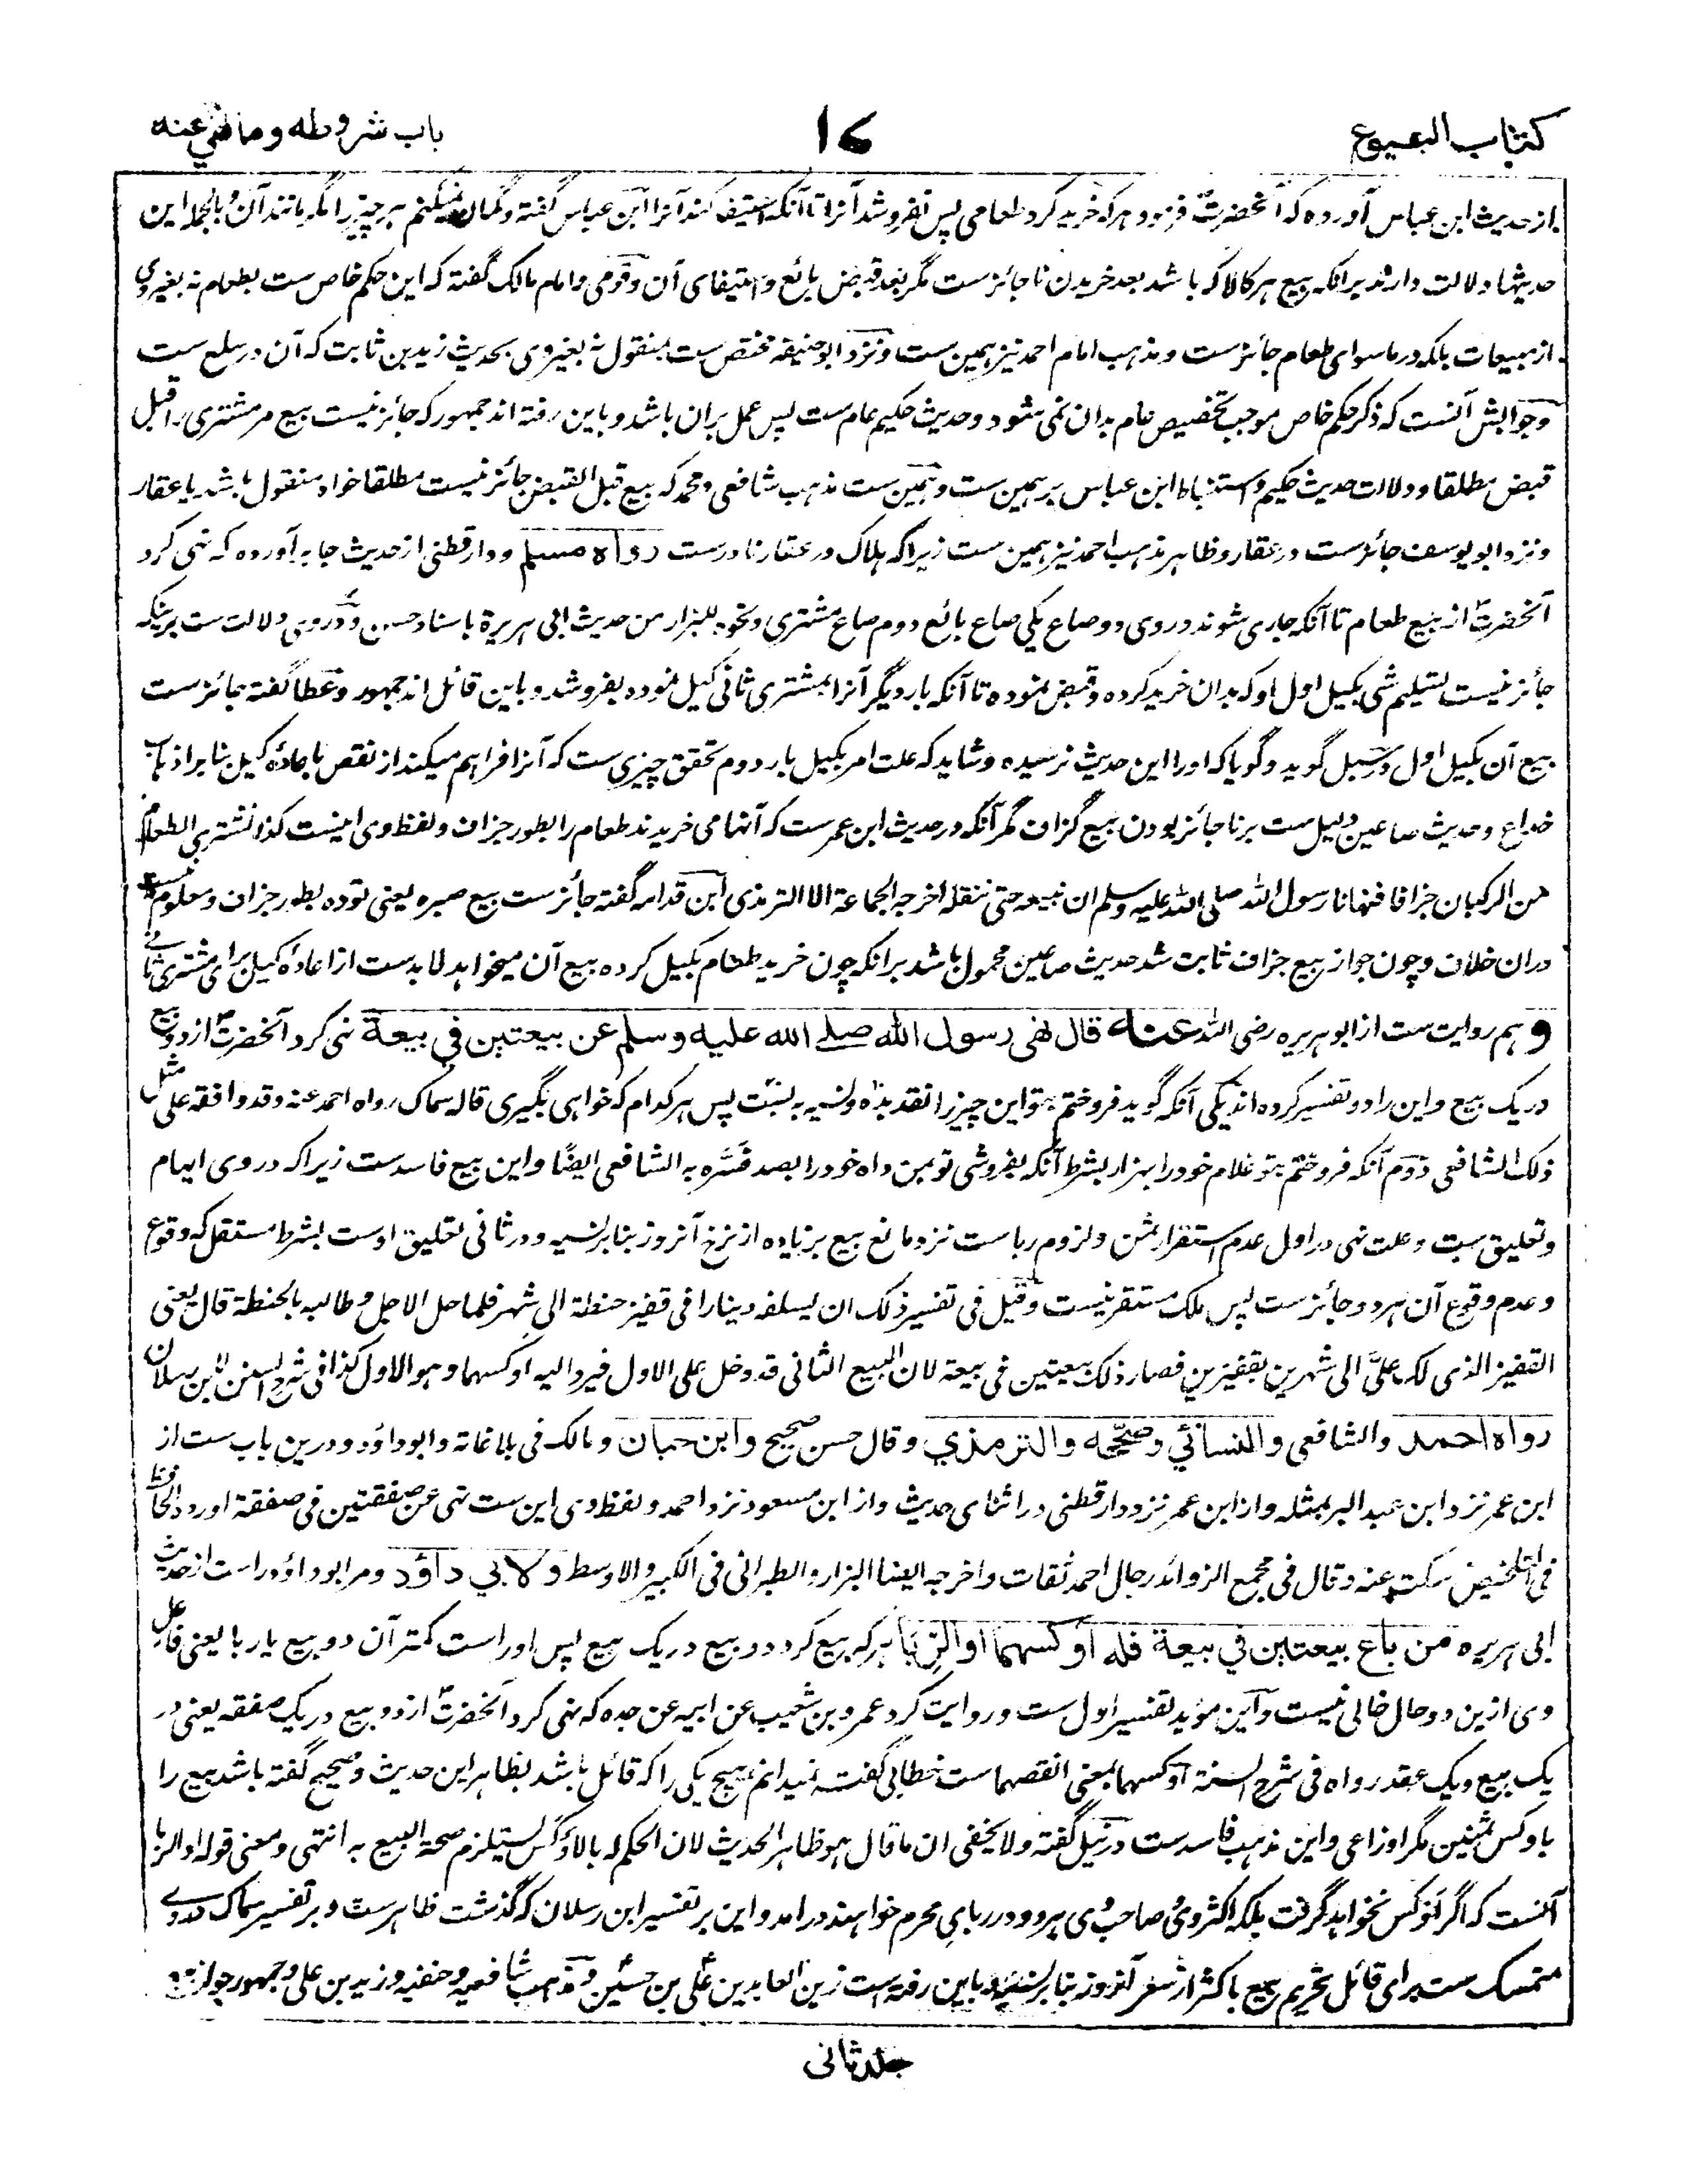 کتاب البیوع
۱۷
باب شروطه وما نهي عنه
از حدیث ابن عباس آورده که آنحضرت فرمود هر که خرید کرد طعامی پس نفروشد آنرا تا آنکه استیفا کند آنرا ابن عباس گفته و گمان نمیکنم هر چیز را مگر مانند آن و بالجمله این
حدیثها دلالت دارند برانکه بیع هر کالا که باشد بعد خریدن نا جائزست مگر بعد قبض بائع و استیفای آن و قومی و امام مالک گفته که این حکم خاص ست بطعام نه بغیر وی
از مبیعات بلکه در ماسوای طعام جائزست و مذهب امام احمد نیز همین ست و نزد ابو حنیفه مختص ست بمنقول نه بغیر وی بحدیث زید بن ثابت که آن در سلع ست
و جوابش آنست که ذکر حکم خاص موجب تخصیص عام بدان نمی شود و حدیث حکیم عام ست پس عمل بران باشد و باین رفته اند جمهور که جائز نیست بیع مر مشتری را قبل
قبض مطلقا و دلالت حدیث حکیم و استنباط ابن عباس بر همین ست و همین ست مذهب شافعی و محمد که بیع قبل القبض جائز نیست مطلقا خواه منقول باشد یا عقار
و نزد ابو یوسف جائزست در عقار و ظاهر مذهب احمد نیز همین ست زیرا که هلاک در عقار نادرست رواه مسلم و دارقطنی از حدیث جابر آورده که نهی کرد
آنحضرت از بیع طعام تا آنکه جاری شوند در وی دو صاع یکی صاع بائع دوم صاع مشتری و نحوه للبزار من حدیث ابی هریرة باسناد حسن و در وی دلالت ست برینکه
جائز نیست تسلیم شی بکیل اول او که بدان خرید کرده و قبض نموده تا آنکه بار دیگر آنرا بمشتری ثانی کیل نموده بفروشد و باین قائل اند جمهور و عطا گفته جائزست
بیع آن بکیل اول و در سبل گوید و گویا که اورا این حدیث نرسیده و شاید که علت امر بکیل بار دوم تحقق چیزی ست که آنرا فراهم میکند از نقص باعادهٔ کیل بنا بر اذهاب
خداع و حدیث صاعین دلیل ست بر نا جائز بودن بیع گزاف مگر آنکه در حدیث ابن عمرست که آنها می خریدند طعام را بطور جزاف و لفظ وی اینست کنا نشتری الطعام
من الرکبان جزافا فنهانا رسول الله صلی الله علیه وسلم ان نبیعه حتی ننقله اخرجه الجماعة الا الترمذی ابن قدامه گفته جائزست بیع صبره یعنی توده بطور جزاف و معلوم نیست
دران خلاف و چون جواز بیع جزاف ثابت شد حدیث صاعین محمول باشد برانکه چون خرید طعام بکیل کرده بیع آن میخواهد لا بدست از اعادهٔ کیل برای مشتری ثانی
وهم روایت ست از ابو هریره رضی الله عنه قال نهى رسول الله صلے الله علیه وسلم عن بیعتین في بیعة نهی کرد آنحضرت از دو بیع
در یک بیع و این را دو تفسیر کرده اند یکی آنکه گوید فروختم بتو این چیز را نقد بده و نسیه به بست پس هر کدام که خواهی بگیری قاله سماک رواه احمد عنه و قد وافقه علی مثل
ذلک الشافعی دوم آنکه فروختم بتو غلام خود را بهزار بشرط آنکه بفروشی تو بمن داه خود را بصد فسّره به الشافعی ایضًا و این بیع فاسدست زیرا که در وی ابهام
و تعلیق ست و علت نهی در اول عدم استقرار ثمن و لزوم رباست نزد مانع بیع بزیاده از نرخ آنروز بنا بر نسیه و در ثانی تعلیق اوست بشرط مستقل که وقوع
و عدم وقوع آن هر دو جائزست پس ملک مستقر نیست و قیل فی تفسیر ذلک ان یسلفه دینارا فی قفیز حنطة الی شهر فلما حل الاجل و طالبه بالحنطة قال بعنی
القفیز الذی لک علیّ الی شهرین بقفیزین فصار ذلک بیعتین فی بیعة لان البیع الثانی قد دخل علی الاول فیرد الیه اوکسهما و هو الاول کذا فی شرح السنن لابن رسلان
رواه احمد والشافعی والنسائي وصحّحه والترمذي و قال حسن صحیح وابن حبان و مالک فی بلاغاته و ابو داؤد و درین باب ست از
ابن عمر نزد ابن عبد البر بمثله و از ابن عمر نزد دارقطنی در اثنای حدیث و از ابن مسعود نزد احمد و لفظ وی این ست نهی عن صفقتین فی صفقة اورده الحافظ
فی التلخیص سکت عنه و قال فی مجمع الزوائد رجال احمد ثقات و اخرجه ایضا البزار و الطبرانی فی الکبیر و الاوسط ولابي داؤد و مر ابو داؤد راست از حدیث
ابی هریره من باع بیعتین في بیعة فله أوکسهما او الرّبا هر که بیع کرد دو بیع در یک بیع پس اوراست کمتر آن دو بیع یا ربا یعنی فاعل
وی ازین دو حال خالی نیست و این مؤید تفسیر اول ست و روایت کرد عمرو بن شعیب عن ابیه عن جده که نهی کرد آنحضرت از دو بیع در یک صفقه یعنی در
یک بیع و یک عقد رواه فی شرح السنة اوکسهما بمعنی انقصهما ست خطابی گفته نمیدانم هیچ یکی را که قائل باشد بظاهر این حدیث و صحیح گفته باشد بیع را
باوکس ثمنین مگر اوزاعی و این مذهب فاسدست در نیل گفته و لا یخفی ان ما قال هو ظاهر الحدیث لان الحکم له بالاوکس یستلزم صحة البیع به انتهی و معنی قوله او الربا
آنست که اگر اوکس نخواهد گرفت بلکه اکثر وی صاحب وی هر دو در ربای محرم خواهند در آمد و این بر تفسیر ابن رسلان که گذشت ظاهرست و بر تفسیر سماک
متمسک ست برای قائل تحریم بیع باکثر از سعر آنروز بنا بر نسیه و باین رفته است زین العابدین علی بن حسین و مذهب شافعیه و حنفیه و زید بن علی و جمهور جواز
جلد ثانی